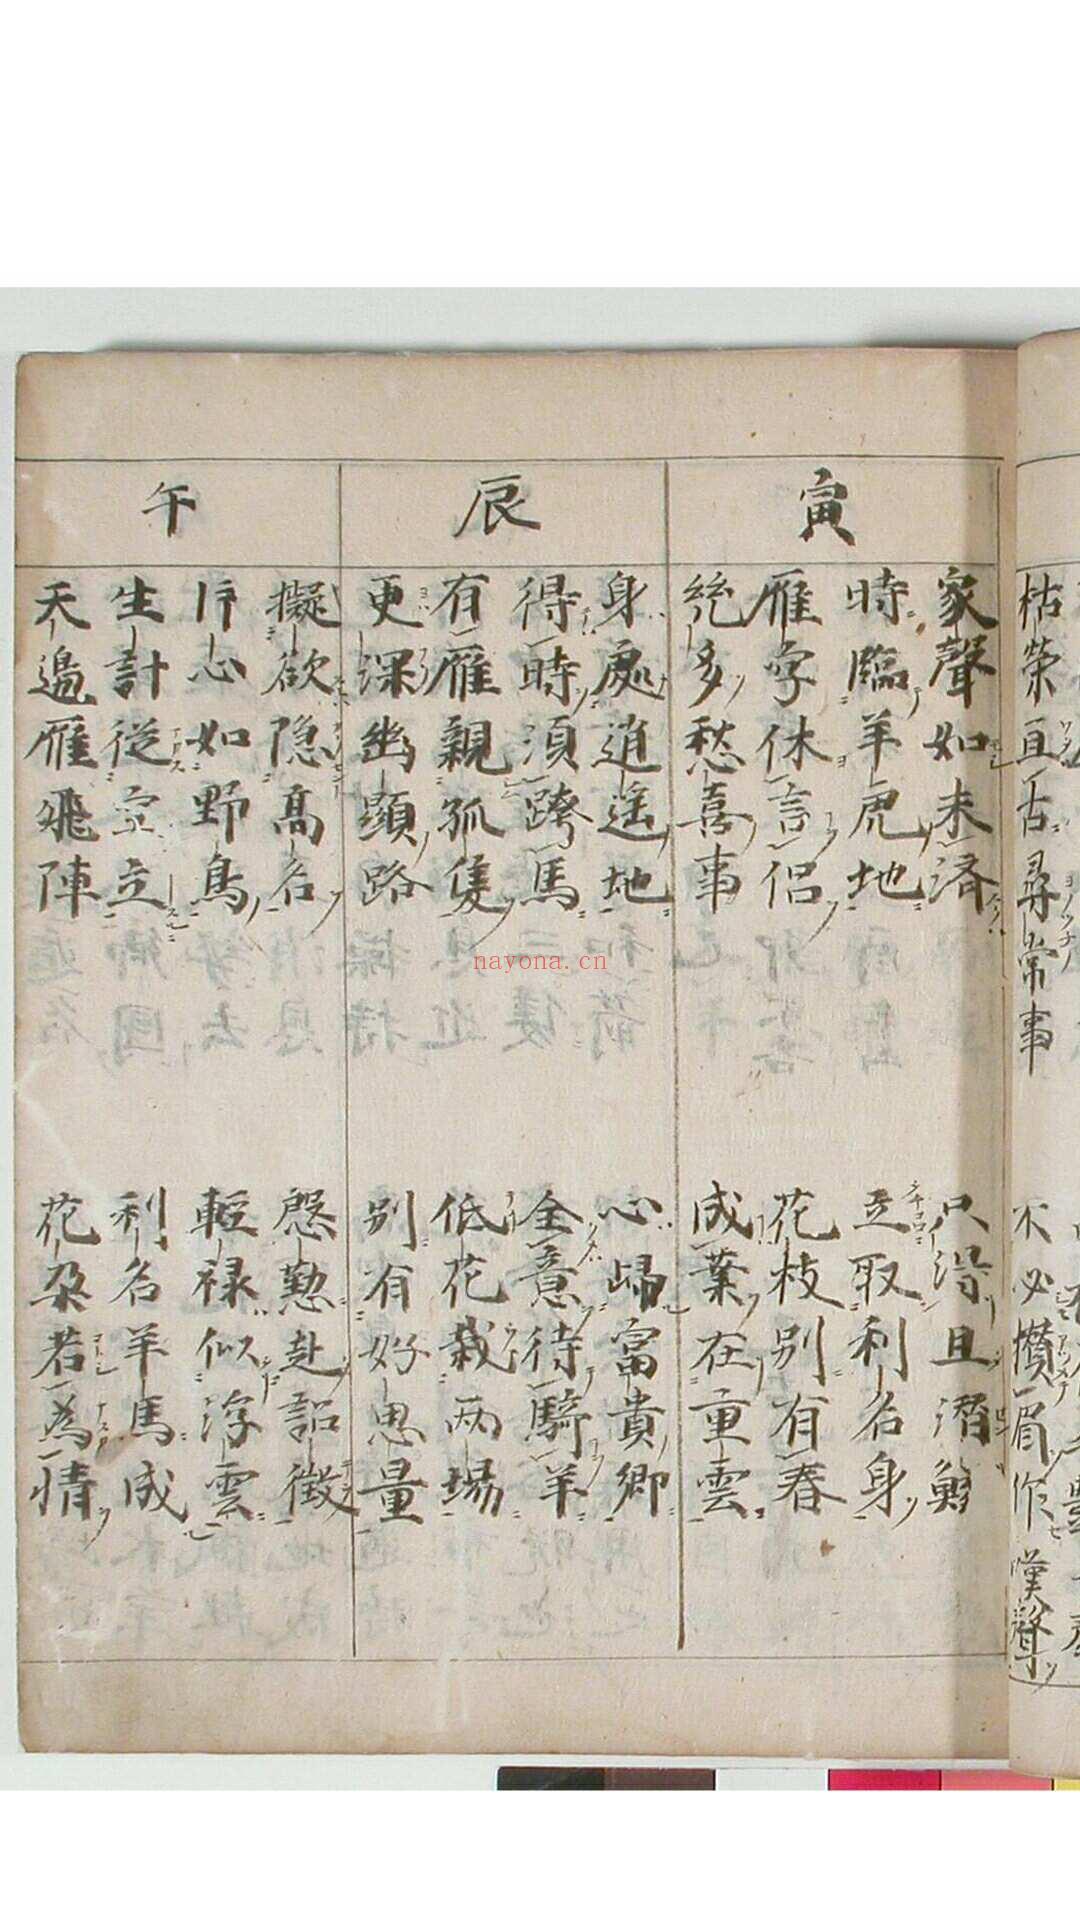 寅
家聲如未済
只浔且潛鱗
時臨羊虎地
互取利名身
雁字休言侶
花枝別有春
絶多愁喜事
成葉在重雲
辰
身處逍遙地
心歸富貴郷
得時須跨馬
全意待騎羊
有雁親孤隻
低花栽兩場
更深幽顯路
別有好思量
午
擬欲隐髙名
慇懃赴詔徴
片心如野鳥
輕禄似浮雲
生計從空立
利名羊馬成
天邉雁飛陣
花朶若為情
枯榮亘古尋常事
不必攢眉作嘆聲
nayona.cn